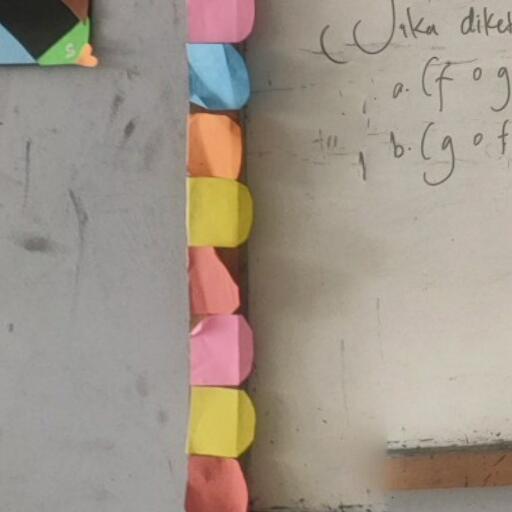 Jika diket
a. (f o g
b. (g o f